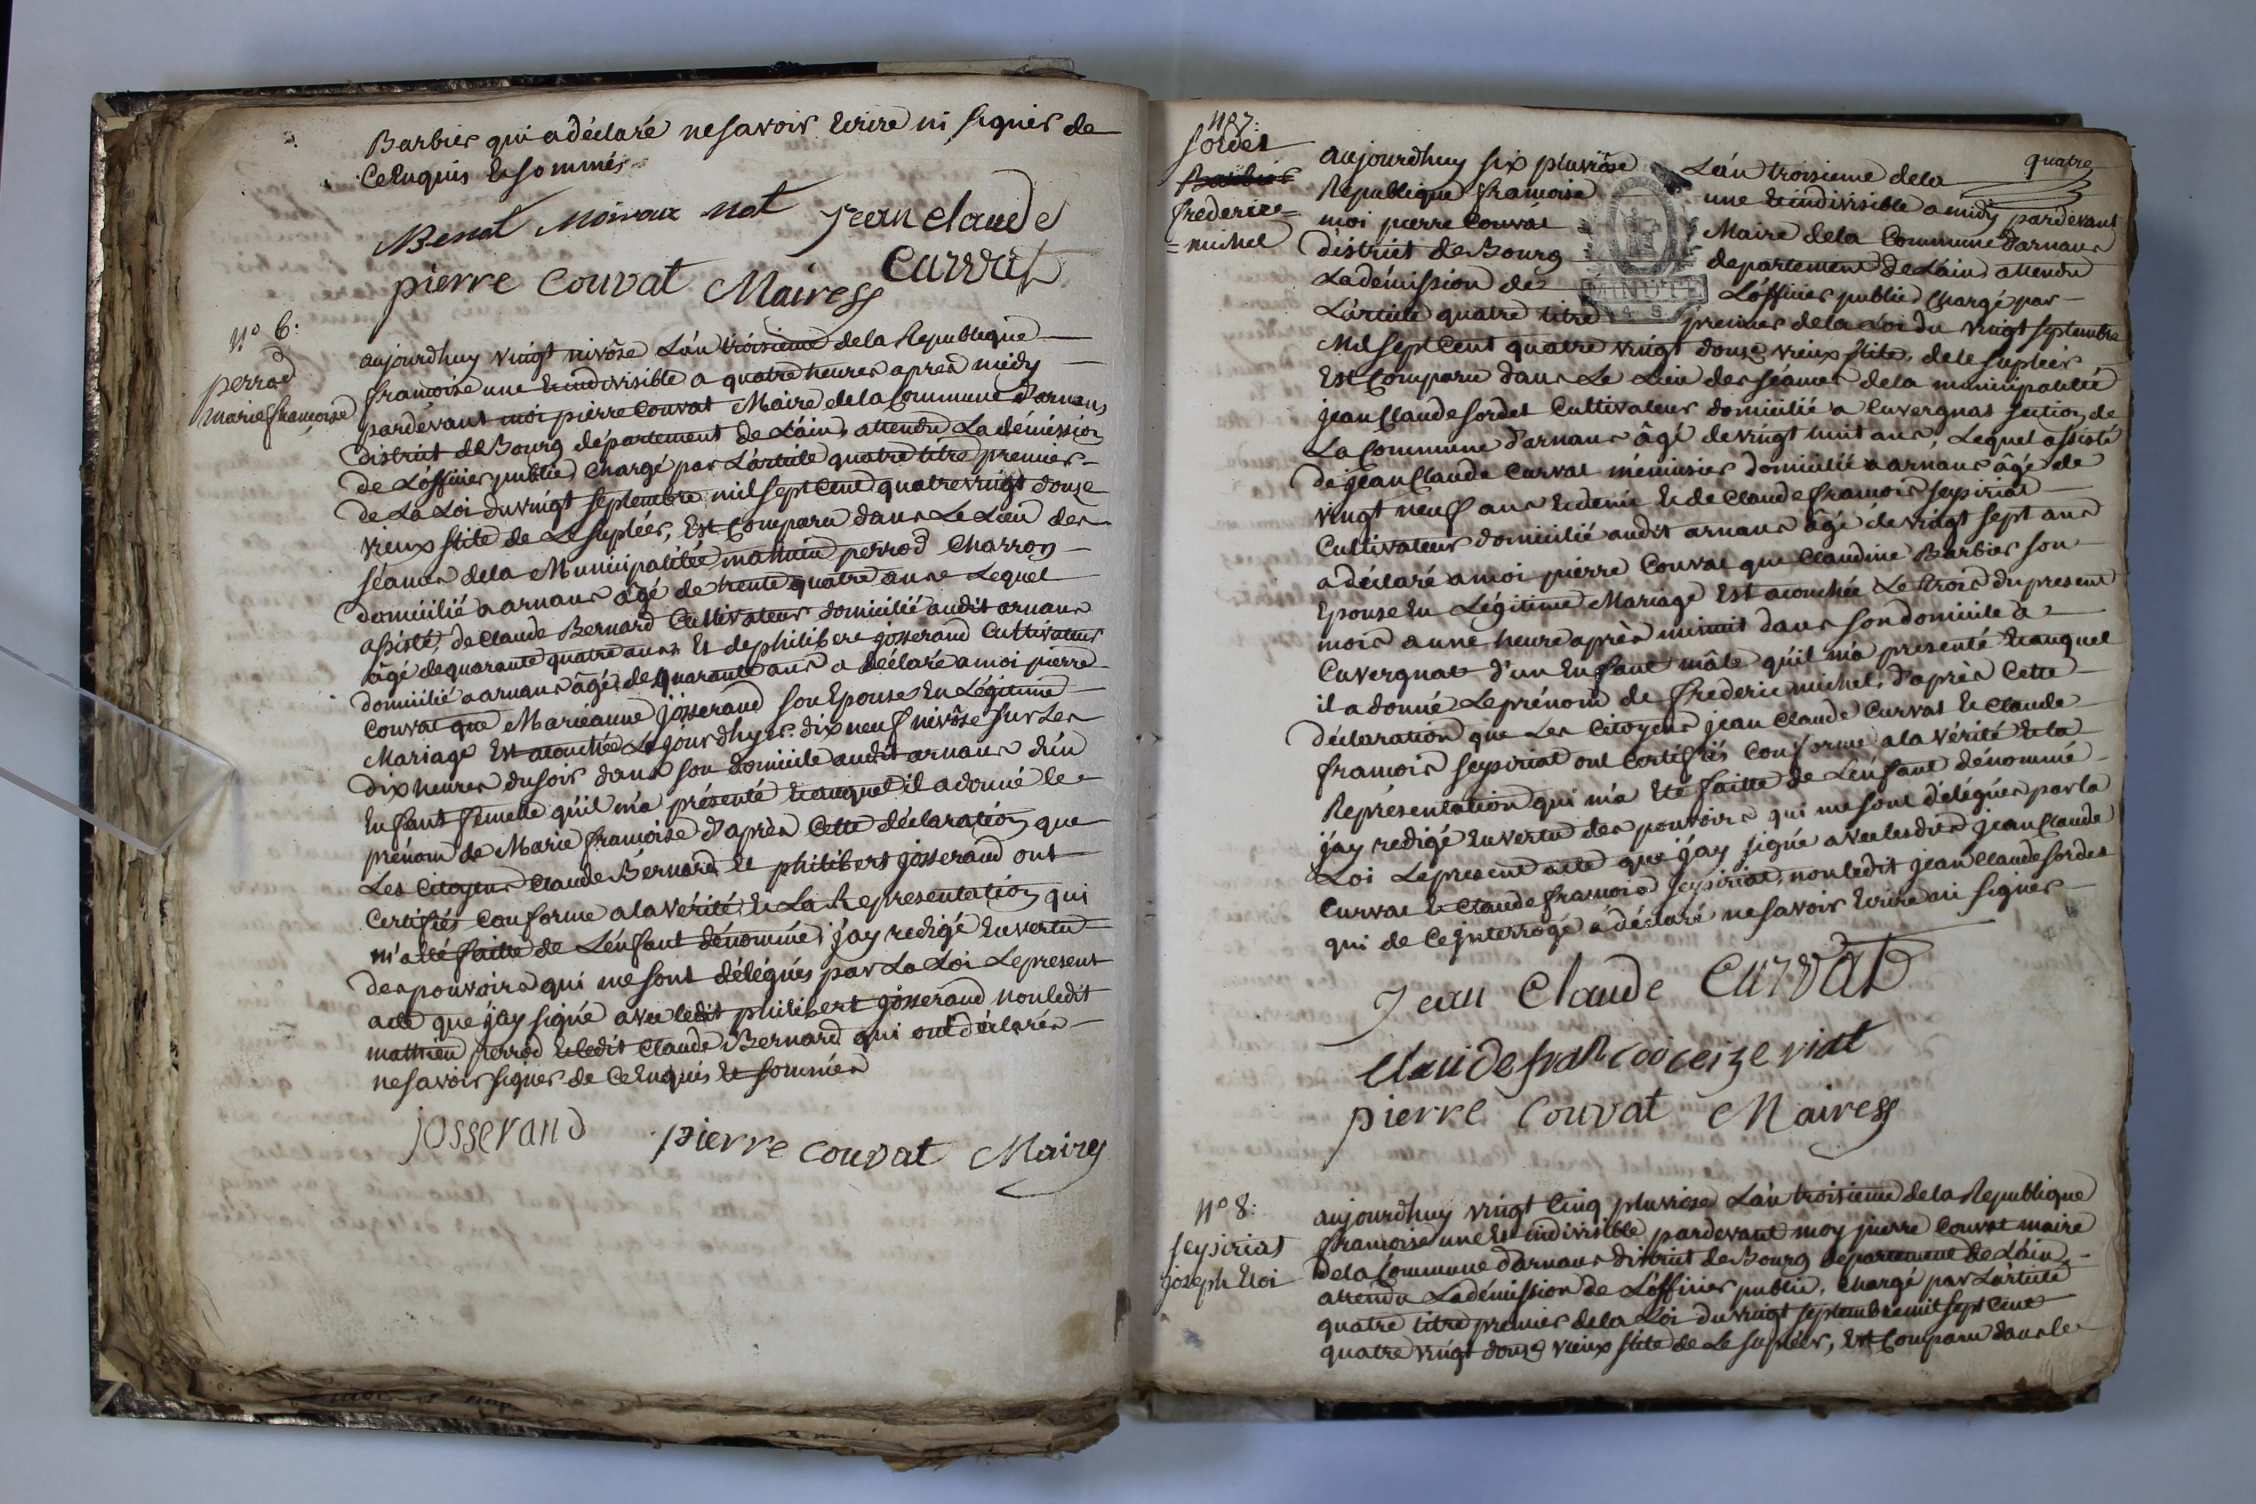 Barbier qui a déclaré ne savoir Ecrire ni signer de
ce Enquis Et sommés
Benoit Moiroux not Jean Claude
Curvat
pierre Couvat Maire
N° 6:
perrod
marie françoise
aujourdhuy vingt nivôse L'an troisieme de la Republique
françoise une Et indivisible a quatre heures après midy
pardevant moi pierre Couvat Maire de la Commune d'arnans
district de Bourg département de L'ain, attendu La démission
de L'officier public, chargé par L'article quatre titre premier
de La Loi du vingt septembre mil sept Cent quatre vingt douze
vieux stile de Le supléer, Est Comparu dans Le Lieu des
séances de la Municipalitée mathieu perrod Charron
domicilié a arnans âgé de trente quatre ans Lequel
assisté, de Claude Bernard Cultivateur domicilié audit arnans
âgé de quarante quatre ans Et de philibert josserand Cultivateur
domicilié a arnans âgé de quarante ans a déclaré a moi pierre
Couvat que Marieanne josserand son Epouse En Légitime
Mariage Est acouchée Le jourdhyer dix neuf nivôse sur Les
Dix heures du soir dans son domicile audit arnans d'un
Enfant femelle qu'il m'a présenté Et auquel il a donné le
prénom de Marie françoise d'après Cette déclaration que
Les Citoyens Claude Bernard Et philibert josserand ont
Certifiés Conforme a la vérité, Et La Representation qui
m'a Eté faitte de L'enfant dénommé, j'ay redigé En vertu
des pouvoirs qui me sont délégués par La Loi Le present
acte que j'ay signé avec ledit philibert josserand non ledit
mathieu perrod Et ledit Claude Bernard qui ont déclarés
ne savoir signer de ce Enquis Et sommés
josserand pierre couvat Maire
N° 7:
sordet
Barbier
frederic
michel
quatre
aujourdhuy six pluviôse L'an troisieme de la
Republique françoise une Et indivisible a midy pardevant
moi pierre Couvat Maire de la Commune d'arnans
district de Bourg departement de L'ain, attendu
La démission de L'officier public chargé par
L'article quatre titre premier de la Loi du vingt septembre
Mil sept Cent quatre vingt douze vieux stile, de le supléer
Est Comparu dans Le Lieu des séances de la municipalitée
jean Claude sordet Cultivateur domicilié a Cuvergnat section de
La Commune d'arnans âgé de vingt huit ans, Lequel assisté
de jean Claude Curvat ménuisier domicilié a arnans âgé de
vingt neuf ans Et demie Et de Claude françois seysiriat
Cultivateur domicilié audit arnans âgé de vingt sept ans
a déclaré a moi pierre Couvat que Claudine Barbier son
Epouse En Légitime Mariage Est acouchée Le trois du present
mois a une heure après minuit dans son domicile a
Cuvergnat d'un Enfant mâle qu'il m'a presenté Et auquel
il a donné Le prénom de frederic michel, d'après Cette
déclaration que Les Citoyens jean Claude Curvat Et Claude
françois seysiriat ont Certifiés Conforme a la vérité Et la
Représentation qui m'a Eté faitte de L'enfant dénommé
j'ay redigé En vertu des pouvoirs qui me sont délégués par la
Loi Le present acte que j'ay signé avec lesdits jean Claude
Curvat Et Claude françois seysiriat, non ledit jean Claude sordet
qui de Ce Interrogé a déclaré ne savoir Ecrire ni signer
Jean Claude Curvat
Claude francoi ceizeriat
pierre Couvat Maire
N° 8:
seysiriat
joseph Eloi
aujourdhuy vingt Cinq pluviose L'an troisieme de la Republique
françoise une Et indivisible pardevant moy pierre Couvat maire
de la Commune d'arnans district de Bourg departement de L'ain,
attendu La démission de L'officier public, chargé par L'article
quatre titre premier de la Loi du vingt septembre mil sept Cent
quatre vingt douze vieux stile de Le supléer, Est Comparu dans le